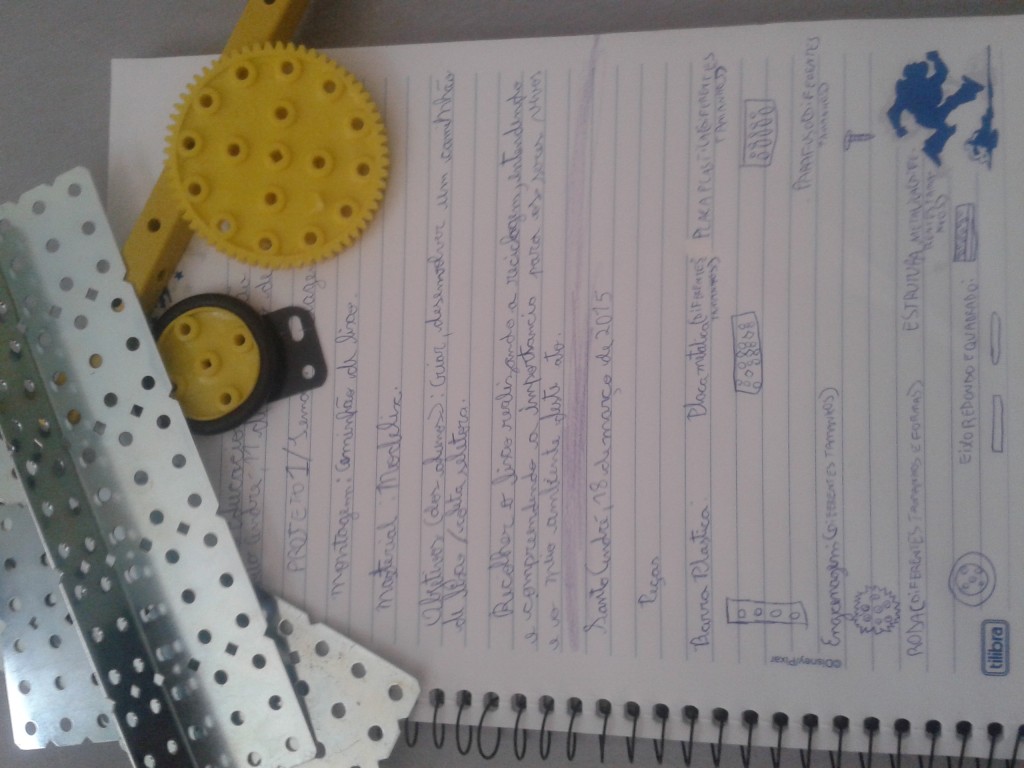 PROJETO 1/
montagem: Caminhão de lixo.
Material: Modelix.
Objetivos (dos alunos): Criar, desenvolver um caminhão
de lixo / coleta seletiva.
Recolher o lixo realizando a reciclagem, entendendo
e compreendendo a importância para os seres vivos
e o meio ambiente
Santo André, 18 de março de 2015
Peças
Barra Plástica. Placa metálica (DIFERENTES TAMANHOS) PLACA PLÁSTICA DIFERENTES TAMANHOS
PARAFUSO DIFERENTES TAMANHOS
Engrenagem (DIFERENTES TAMANHOS)
©Disney/Pixar
RODA (DIFERENTES TAMANHOS E FORMAS) ESTRUTURA METÁLICA
EIXO REDONDO E QUADRADO:
tilibra